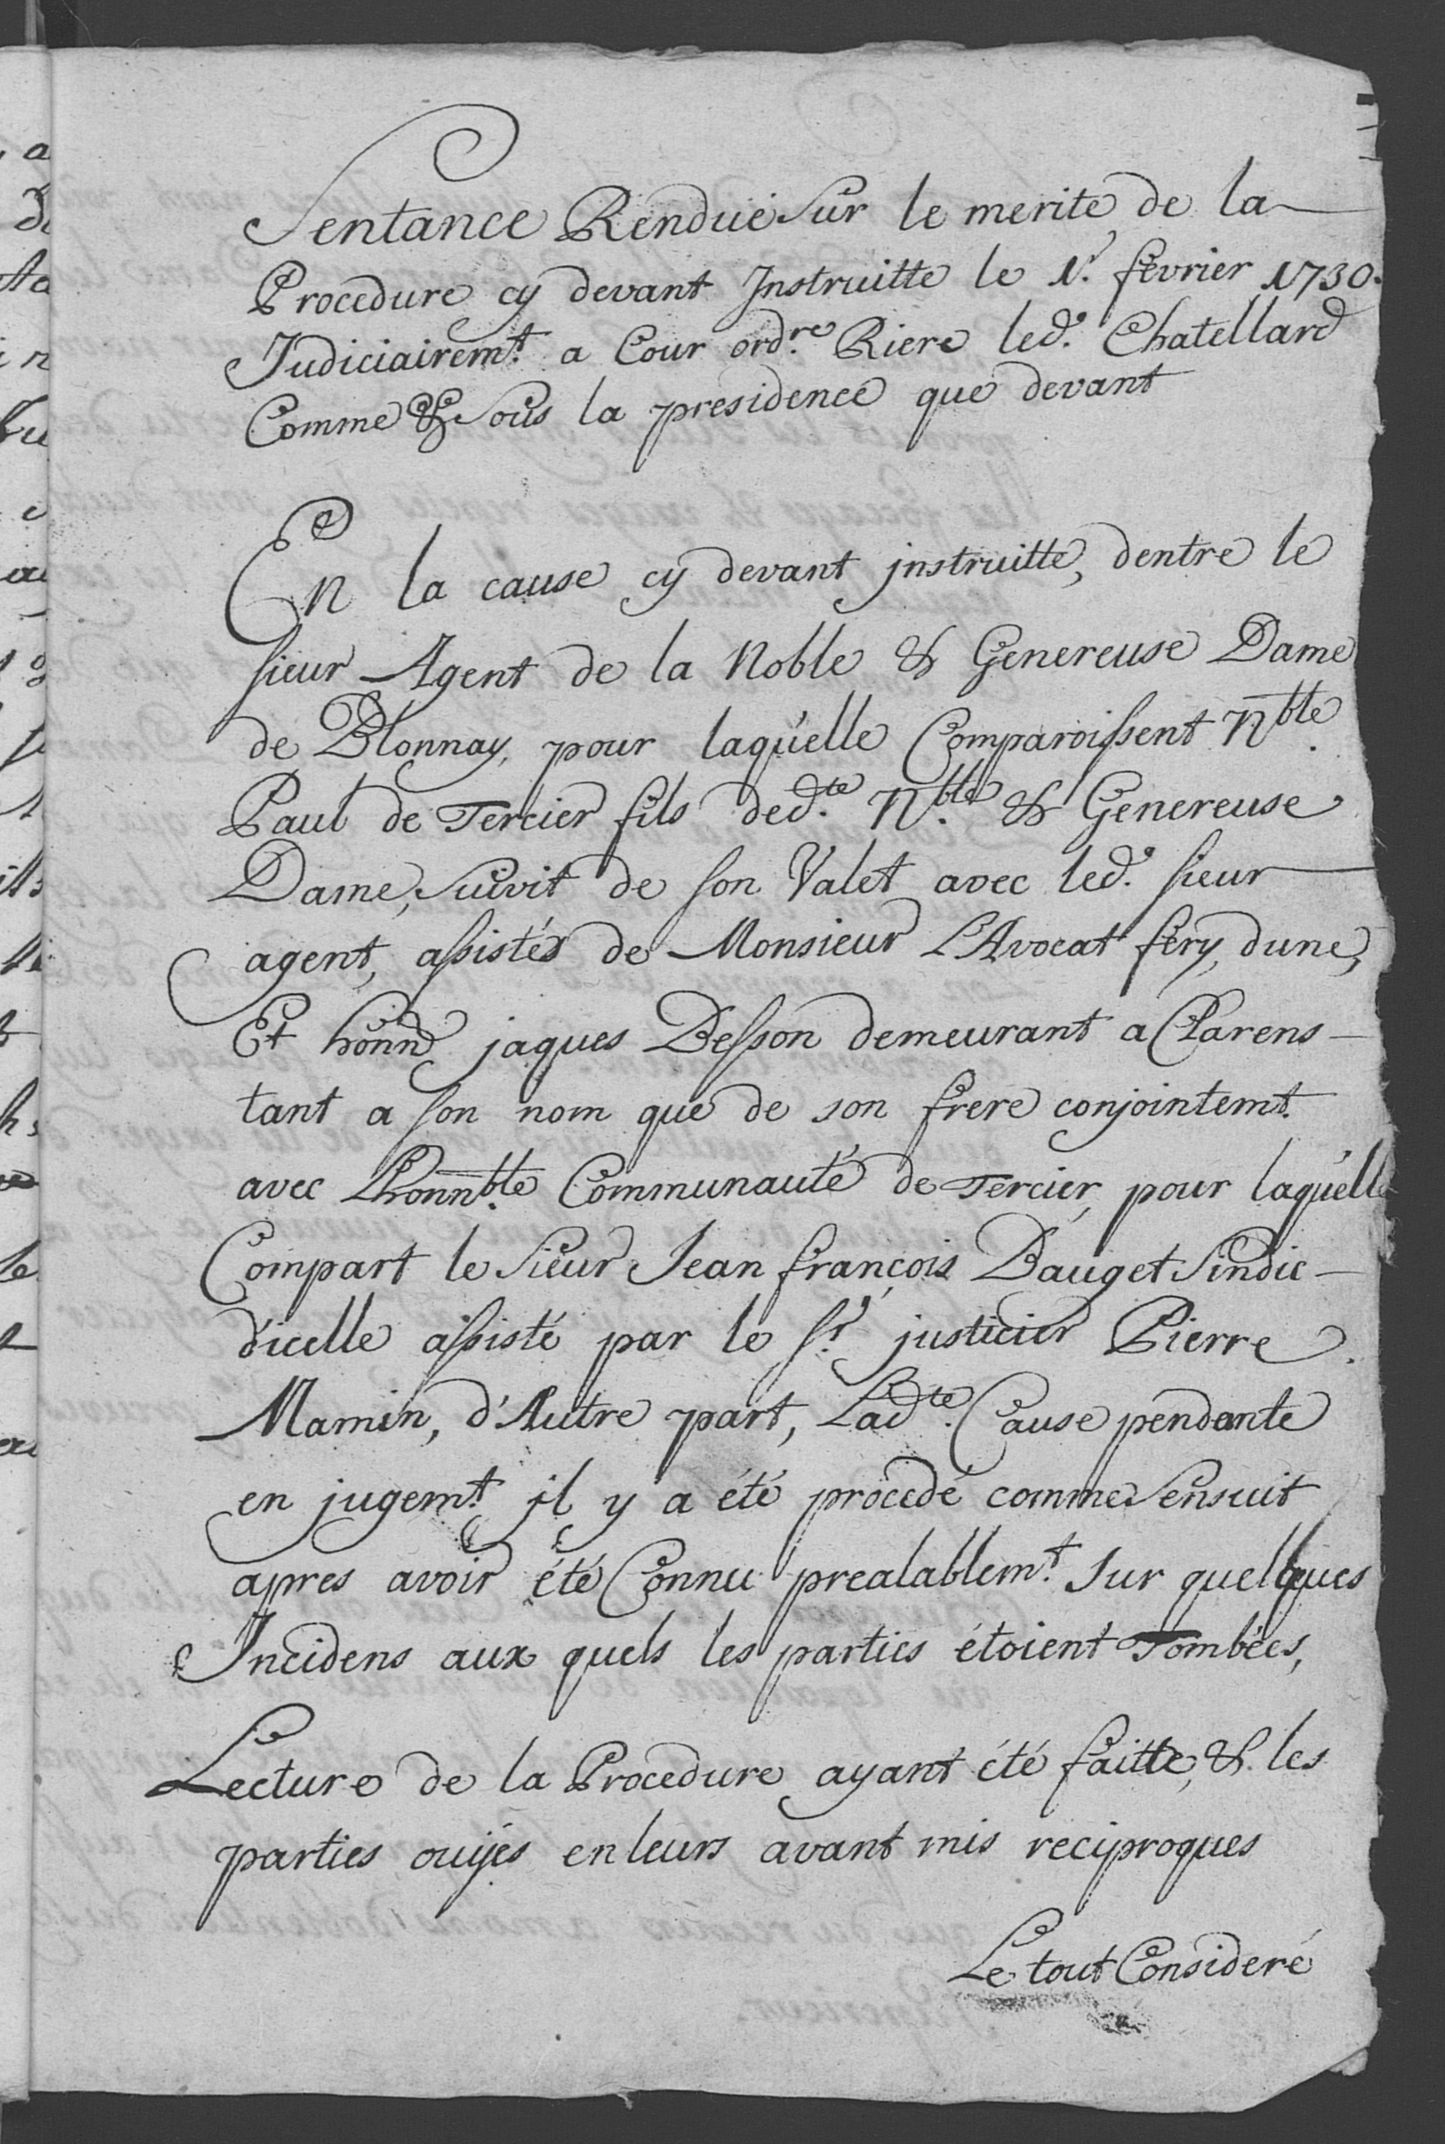 Sentance Rendue Sur le merite de la
Procedure cy devant Instruitte le 1.r fevrier 1730.
Judiciairem.t a Cour ord.re Riere led.t Chatellard
Comme & Sous la presidence que devant
En la cause cy devant jnstruitte, dentre le
sieur Agent de la Noble & Genereuse Dame
de Blonnay, pour laquelle Comparoissent N.ble
Paul de Tercier fils ded.te N.ble & Genereuse
Dame, Suivit de son Valet avec led.t sieur
agent, assistés de Monsieur L'Avocat fery, dune,
Et honn.d jaques Besson demeurant a Clarens
tant a son nom que de son frere conjointemt.
avec Lhonn.ble Communauté de Tercier, pour laquelle
Compart le Sieur Jean françois Dauget Sindic
d'icelle assisté par le s.r justicier Pierre
Mamin, d'Autre part, Lad.te Cause pendante
en jugem.t jl y a été procedé comme Sensuit
apres avoir été Connu prealablem.t Sur quelques
Incidens aux quels les parties étoient Tombées,
Lecture de la Procedure ayant été faitte, & les
parties ouijes en leurs avant mis reciproques
Le tout Consideré